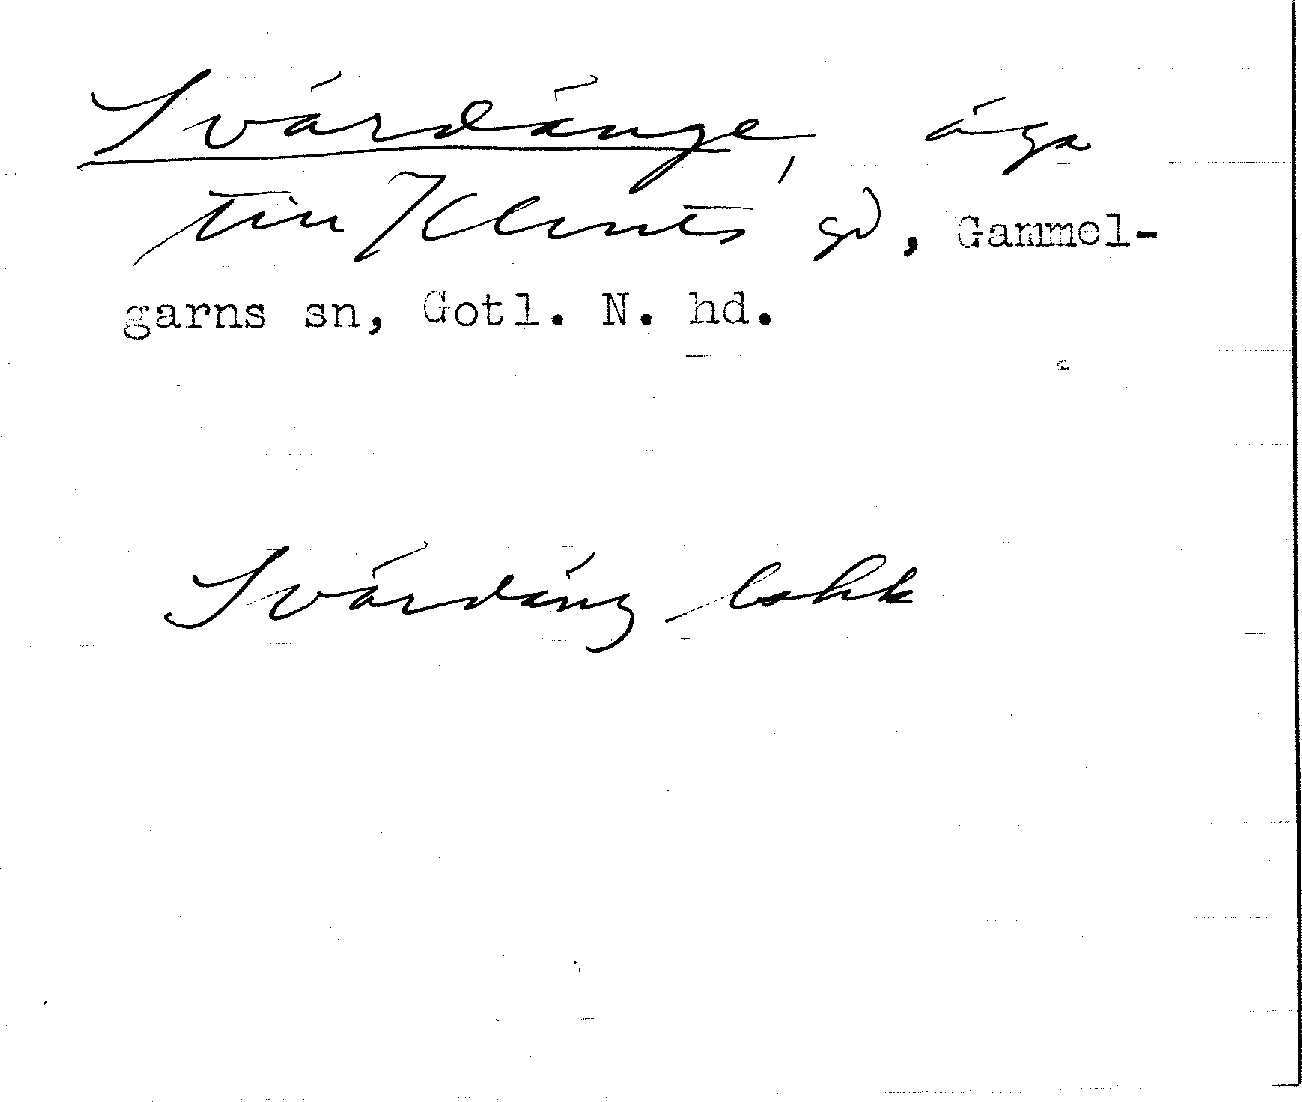 Svärdänge, äga
till Klints gd, Gammel-
garns sn, Gotl. N. hd.
Svärdäng